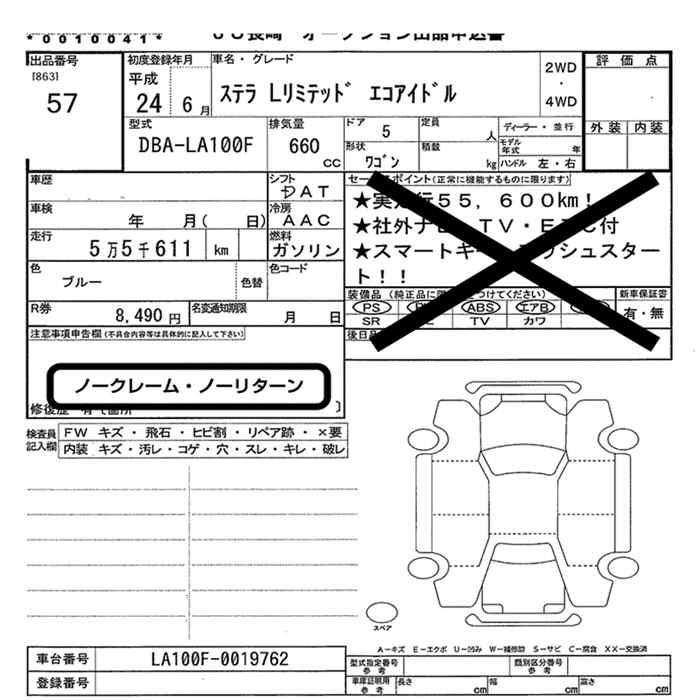 *0010041*
出品番号
[863]
57
初度登録年月
平成
24 6月
車名・グレード
ステラ Lリミテッド エコアイドル
2WD
・
4WD
評価点
外装 内装
型式
DBA-LA100F
排気量
660
CC
ドア
5
定員
人
ディーラー・並行
形状
ワゴン
積載
kg
モデル年式
年
ハンドル 左・右
車歴
シフト
DAT
車検
年 月( 日)
冷房
AAC
走行
5万5千611 km
燃料
ガソリン
色
ブルー
色替
色コード
R券
8,490円
名変通知期限
月 日
ポイント(正常に機能するものに限ります)
55,600km!
★社外ナ TV・E 付
★スマートキー シュスター
ト!!
装備品(純正品に つけてください)
PS ABS エアB
SR TV カワ
新車保証書
有・無
後日
注意事項申告欄(不具合内容等は具体的に記入して下さい)
ノークレーム・ノーリターン
検査員
記入欄
FW キズ・飛石・ヒビ割・リペア跡・×要
内装 キズ・汚レ・コゲ・穴・スレ・キレ・破レ
スペア
A-キズ E-エクボ U-凹み W-補修跡 S-サビ C-腐食 XX-交換済
車台番号
LA100F-0019762
登録番号
型式指定番号
参考
類別区分番号
参考
車庫証明用
参考
長さ cm
幅 cm
高さ cm